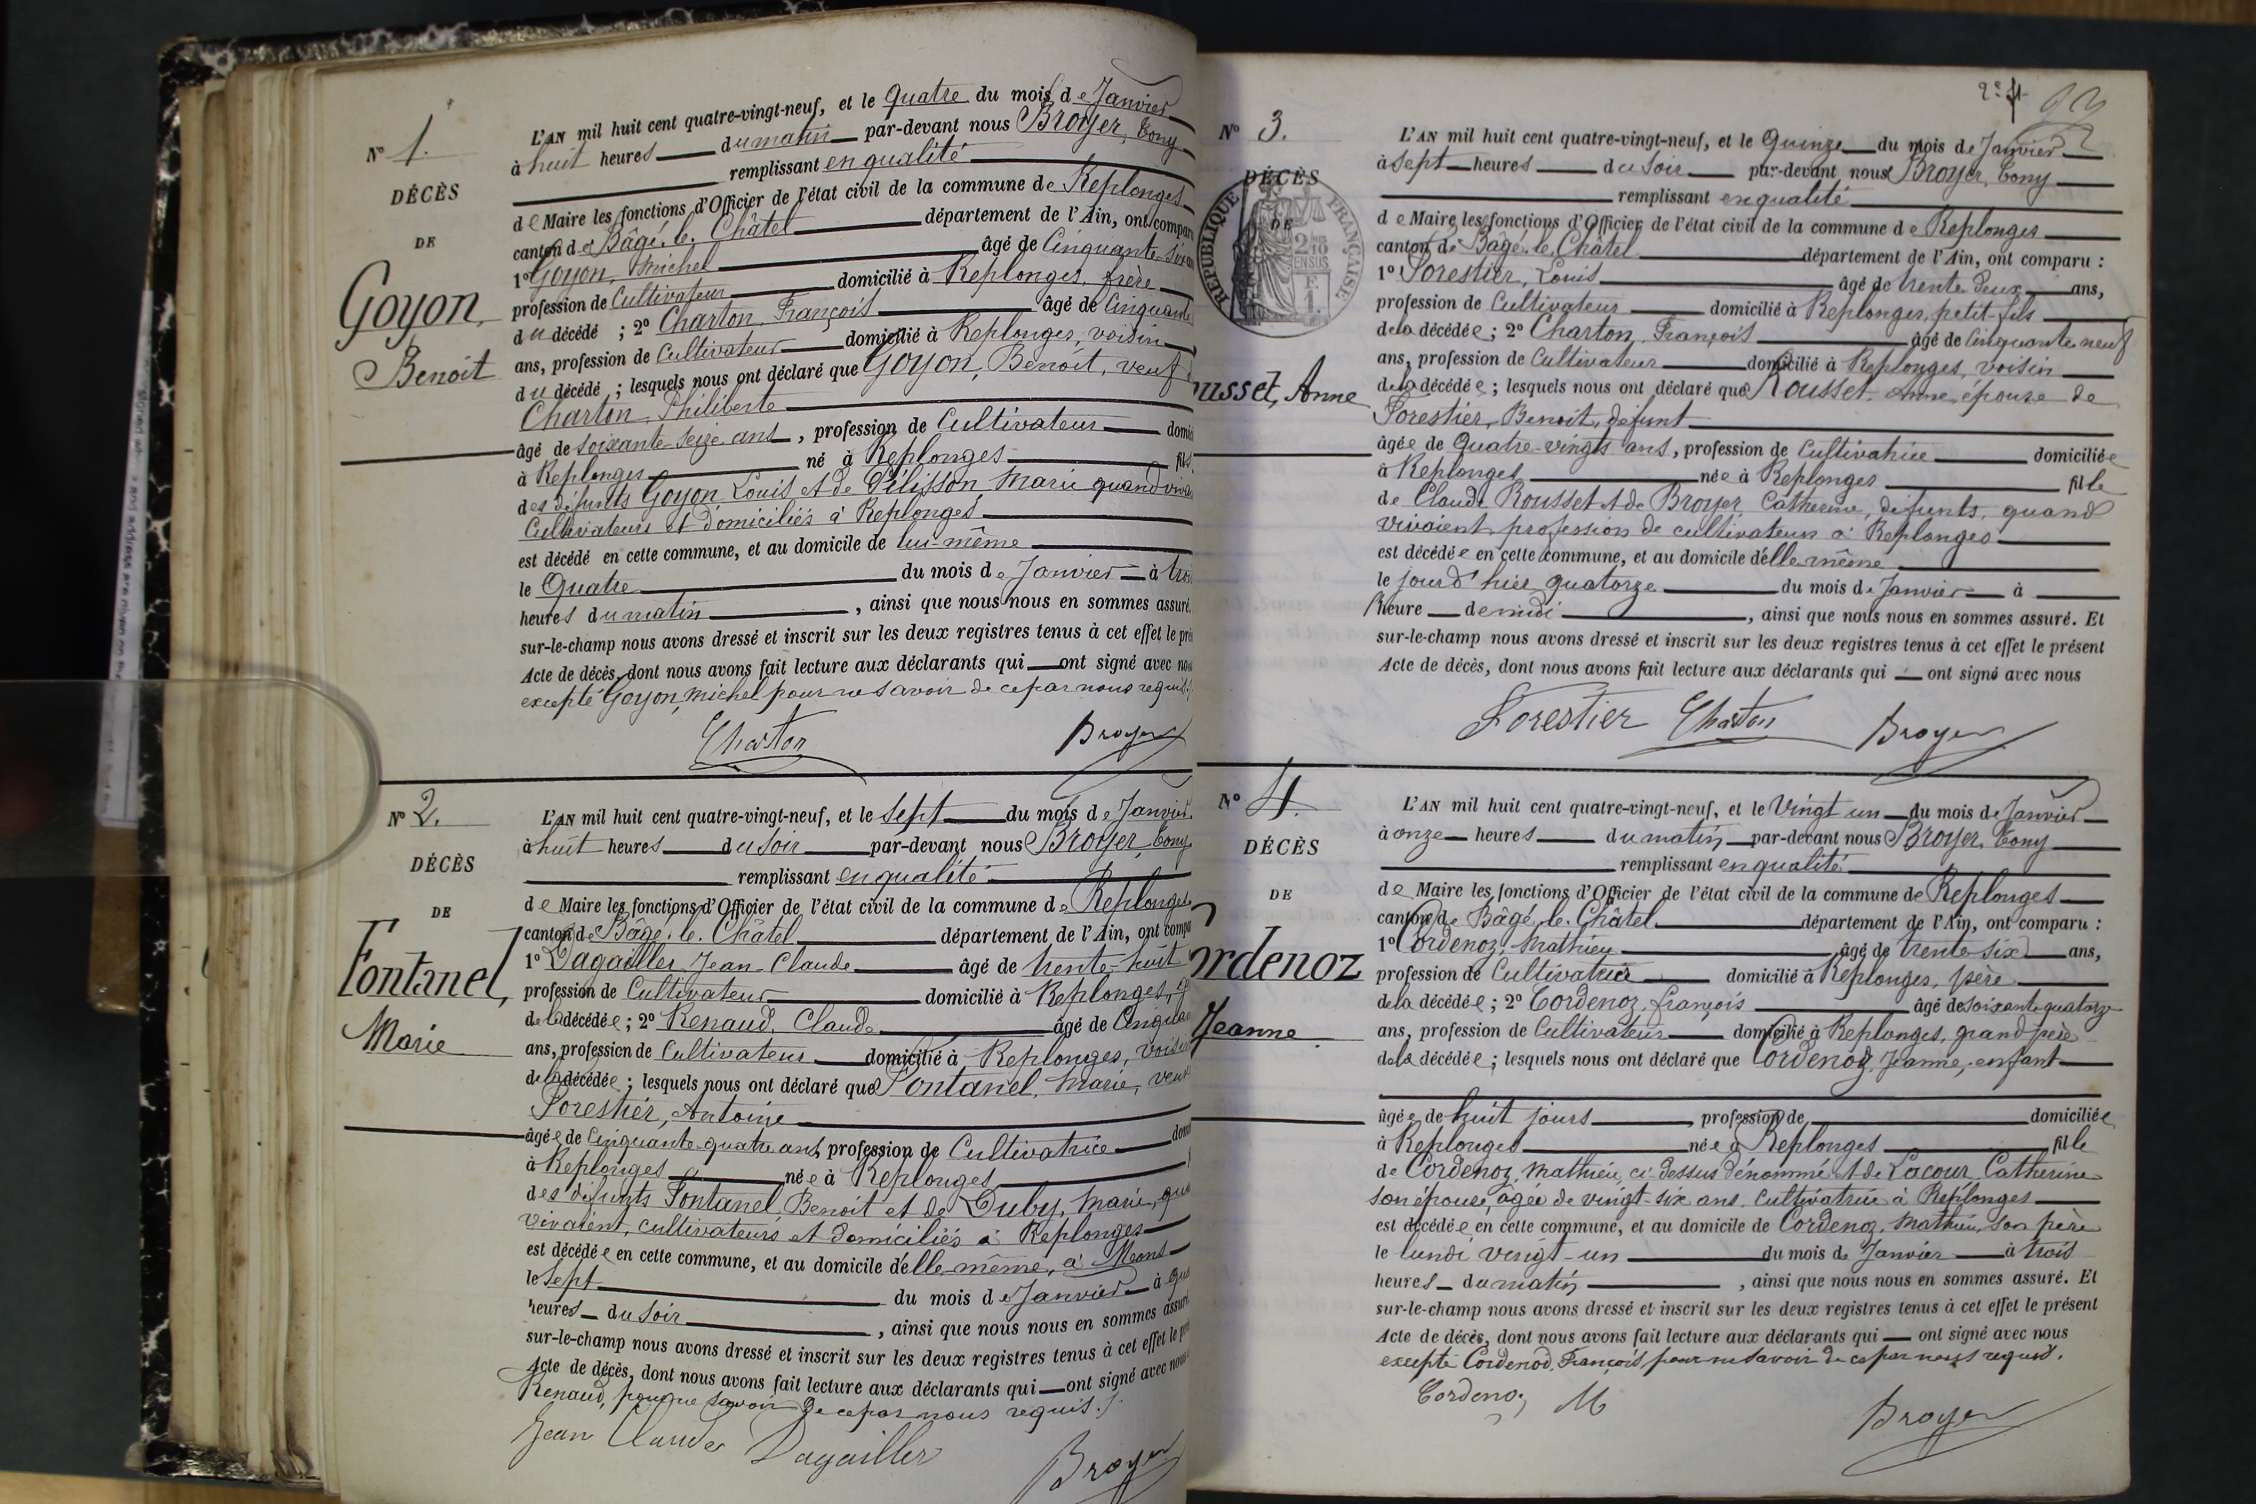 Nº 1.
DÉCÈS
DE
Goyon,
Benoit
L'AN mil huit cent quatre-vingt-neuf, et le Quatre du mois de Janvier
à huit heures du matin par-devant nous Broyer, Tony
remplissant en qualité
de Maire les fonctions d'Officier de l'état civil de la commune de Replonges
canton de Bâgé-le-Châtel département de l'Ain, ont compar
1º Goyon, Michel âgé de Cinquante-six an
profession de Cultivateur domicilié à Replonges, frère
du décédé ; 2º Charton, François âgé de Cinquante
ans, profession de Cultivateur domicilié à Replonges, voisin
du décédé ; lesquels nous ont déclaré que Goyon, Benoit, veuf
Charton, Philiberte
âgé de soixante-seize ans, profession de Cultivateur domici
à Replonges né à Replonges fils
des défunts Goyon Louis et de Pélisson, Marie quand viva
Cultivateurs et domiciliés à Replonges
est décédé en cette commune, et au domicile de lui-même
le Quatre du mois de Janvier à trois
heures du matin, ainsi que nous nous en sommes assuré.
sur-le-champ nous avons dressé et inscrit sur les deux registres tenus à cet effet le pré
Acte de décès, dont nous avons fait lecture aux déclarants qui ont signé avec nous
excepté Goyon, Michel pour ne savoir de ce par nous requis.
Charton Broyer
Nº 2.
DÉCÈS
DE
Fontanel,
Marie
L'AN mil huit cent quatre-vingt-neuf, et le Sept du mois de Janvier
à huit heures du soir par-devant nous Broyer, Tony
remplissant en qualité
de Maire les fonctions d'Officier de l'état civil de la commune de Replonges
canton de Bâgé-le-Châtel département de l'Ain, ont compa
1º Dagailler Jean-Claude âgé de trente-huit
profession de Cultivateur domicilié à Replonges,
de la décédée ; 2º Renaud, Claude âgé de Cinqua
ans, profession de Cultivateur domicilié à Replonges, voisin
de la décédée ; lesquels nous ont déclaré que Fontanel, Marie, veuve
Forestier, Antoine
âgée de Cinquante-quatre ans, profession de Cultivatrice domi
à Replonges née à Replonges
des défunts Fontanel Benoit et de Duby, Marie, qua
vivaient, cultivateurs et domiciliés à Replonges
est décédée en cette commune, et au domicile d'elle-même, à Meons
le Sept du mois de Janvier à qua
heures du soir, ainsi que nous nous en sommes assuré
sur-le-champ nous avons dressé et inscrit sur les deux registres tenus à cet effet le pré
Acte de décès, dont nous avons fait lecture aux déclarants qui ont signé avec nous
Renaud, pour ne savoir de ce par nous requis.
Jean Claude Dagailler Broyer
2e f
Nº 3.
DÉCÈS
DE
RÉPUBLIQUE FRANÇAISE
2/10 EN SUS
F. 1.
ousset, Anne
L'AN mil huit cent quatre-vingt-neuf, et le Quinze du mois de Janvier
à sept heures du soir par-devant nous Broyer, Tony
remplissant en qualité
de Maire les fonctions d'Officier de l'état civil de la commune de Replonges
canton de Bâgé-le-Châtel département de l'Ain, ont comparu :
1º Forestier, Louis âgé de trente deux ans,
profession de Cultivateur domicilié à Replonges, petit-fils
de la décédée ; 2º Charton, François âgé de Cinquante neuf
ans, profession de Cultivateur domicilié à Replonges, voisin
de la décédée ; lesquels nous ont déclaré que Rousset Anne épouse de
Forestier, Benoit, défunt
âgée de Quatre-vingts ans, profession de Cultivatrice domiciliée
à Replonges née à Replonges fille
de Claude Rousset et de Broyer Catherine, défunts, quand
vivaient profession de cultivateurs à Replonges
est décédée en cette commune, et au domicile d'elle même
le jour d'hier quatorze du mois de Janvier à
heure de midi, ainsi que nous nous en sommes assuré. Et
sur-le-champ nous avons dressé et inscrit sur les deux registres tenus à cet effet le présent
Acte de décès, dont nous avons fait lecture aux déclarants qui ont signé avec nous
Forestier Charton Broyer
Nº 4.
DÉCÈS
DE
Cordenoz
Jeanne
L'AN mil huit cent quatre-vingt-neuf, et le Vingt un du mois de Janvier
à onze heures du matin par-devant nous Broyer, Tony
remplissant en qualité
de Maire les fonctions d'Officier de l'état civil de la commune de Replonges
canton de Bâgé-le-Châtel département de l'Ain, ont comparu :
1º Cordenoz, Mathieu âgé de trente six ans,
profession de Cultivateur domicilié à Replonges, père
de la décédée ; 2º Cordenoz, françois âgé de soixante quatorze
ans, profession de Cultivateur domicilié à Replonges, grand père
de la décédée ; lesquels nous ont déclaré que Cordenoz, Jeanne, enfant
âgée de huit jours, profession de domiciliée
à Replonges née à Replonges fille
de Cordenoz, Mathieu, ci-dessus dénommé et de Lacour Catherine
son épouse, âgée de vingt-six ans, cultivatrice à Replonges
est décédée en cette commune, et au domicile de Cordenoz, Mathieu, son père
le lundi vingt-un du mois de Janvier à trois
heures du matin, ainsi que nous nous en sommes assuré. Et
sur-le-champ nous avons dressé et inscrit sur les deux registres tenus à cet effet le présent
Acte de décès, dont nous avons fait lecture aux déclarants qui ont signé avec nous
excepté Cordenod, François pour ne savoir de ce par nous requis.
Cordenoz M Broyer